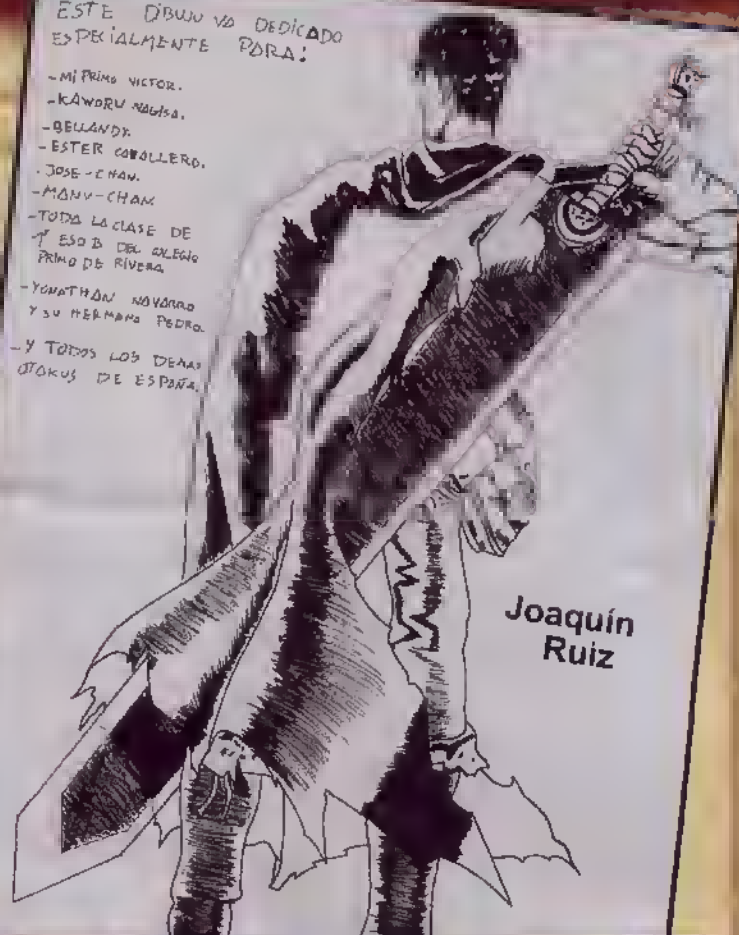 ESTE DIBUJO VA DEDICADO
ESPECIALMENTE PARA:
- MI PRIMO VICTOR.
- KAWORU NAGISA.
- BELLANDY.
- ESTER CABALLERO.
- JOSE-CHAN.
- MANU-CHAN
- TODA LA CLASE DE
1º ESO B DEL COLEGIO
PRIMO DE RIVERA
- YONATHAN NAVARRO
Y SU HERMANO PEDRO.
- Y TODOS LOS DEMAS
OTAKUS DE ESPAÑA.
Joaquín
Ruiz